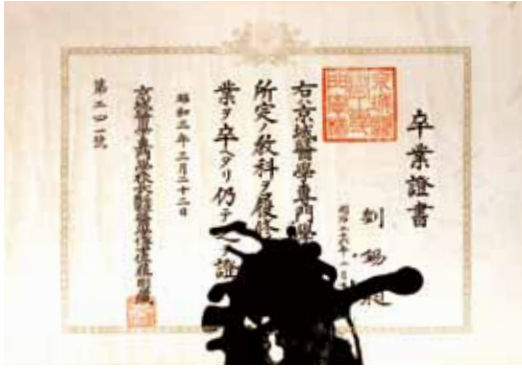 卒業證書
劉錫
明治
右京城醫學專門學
所定ノ教科ヲ履修
業ヲ卒ヘリ仍テ證
昭和三年三月二十二日
京城醫學專門學校長醫學博士佐藤剛藏
第二四一號